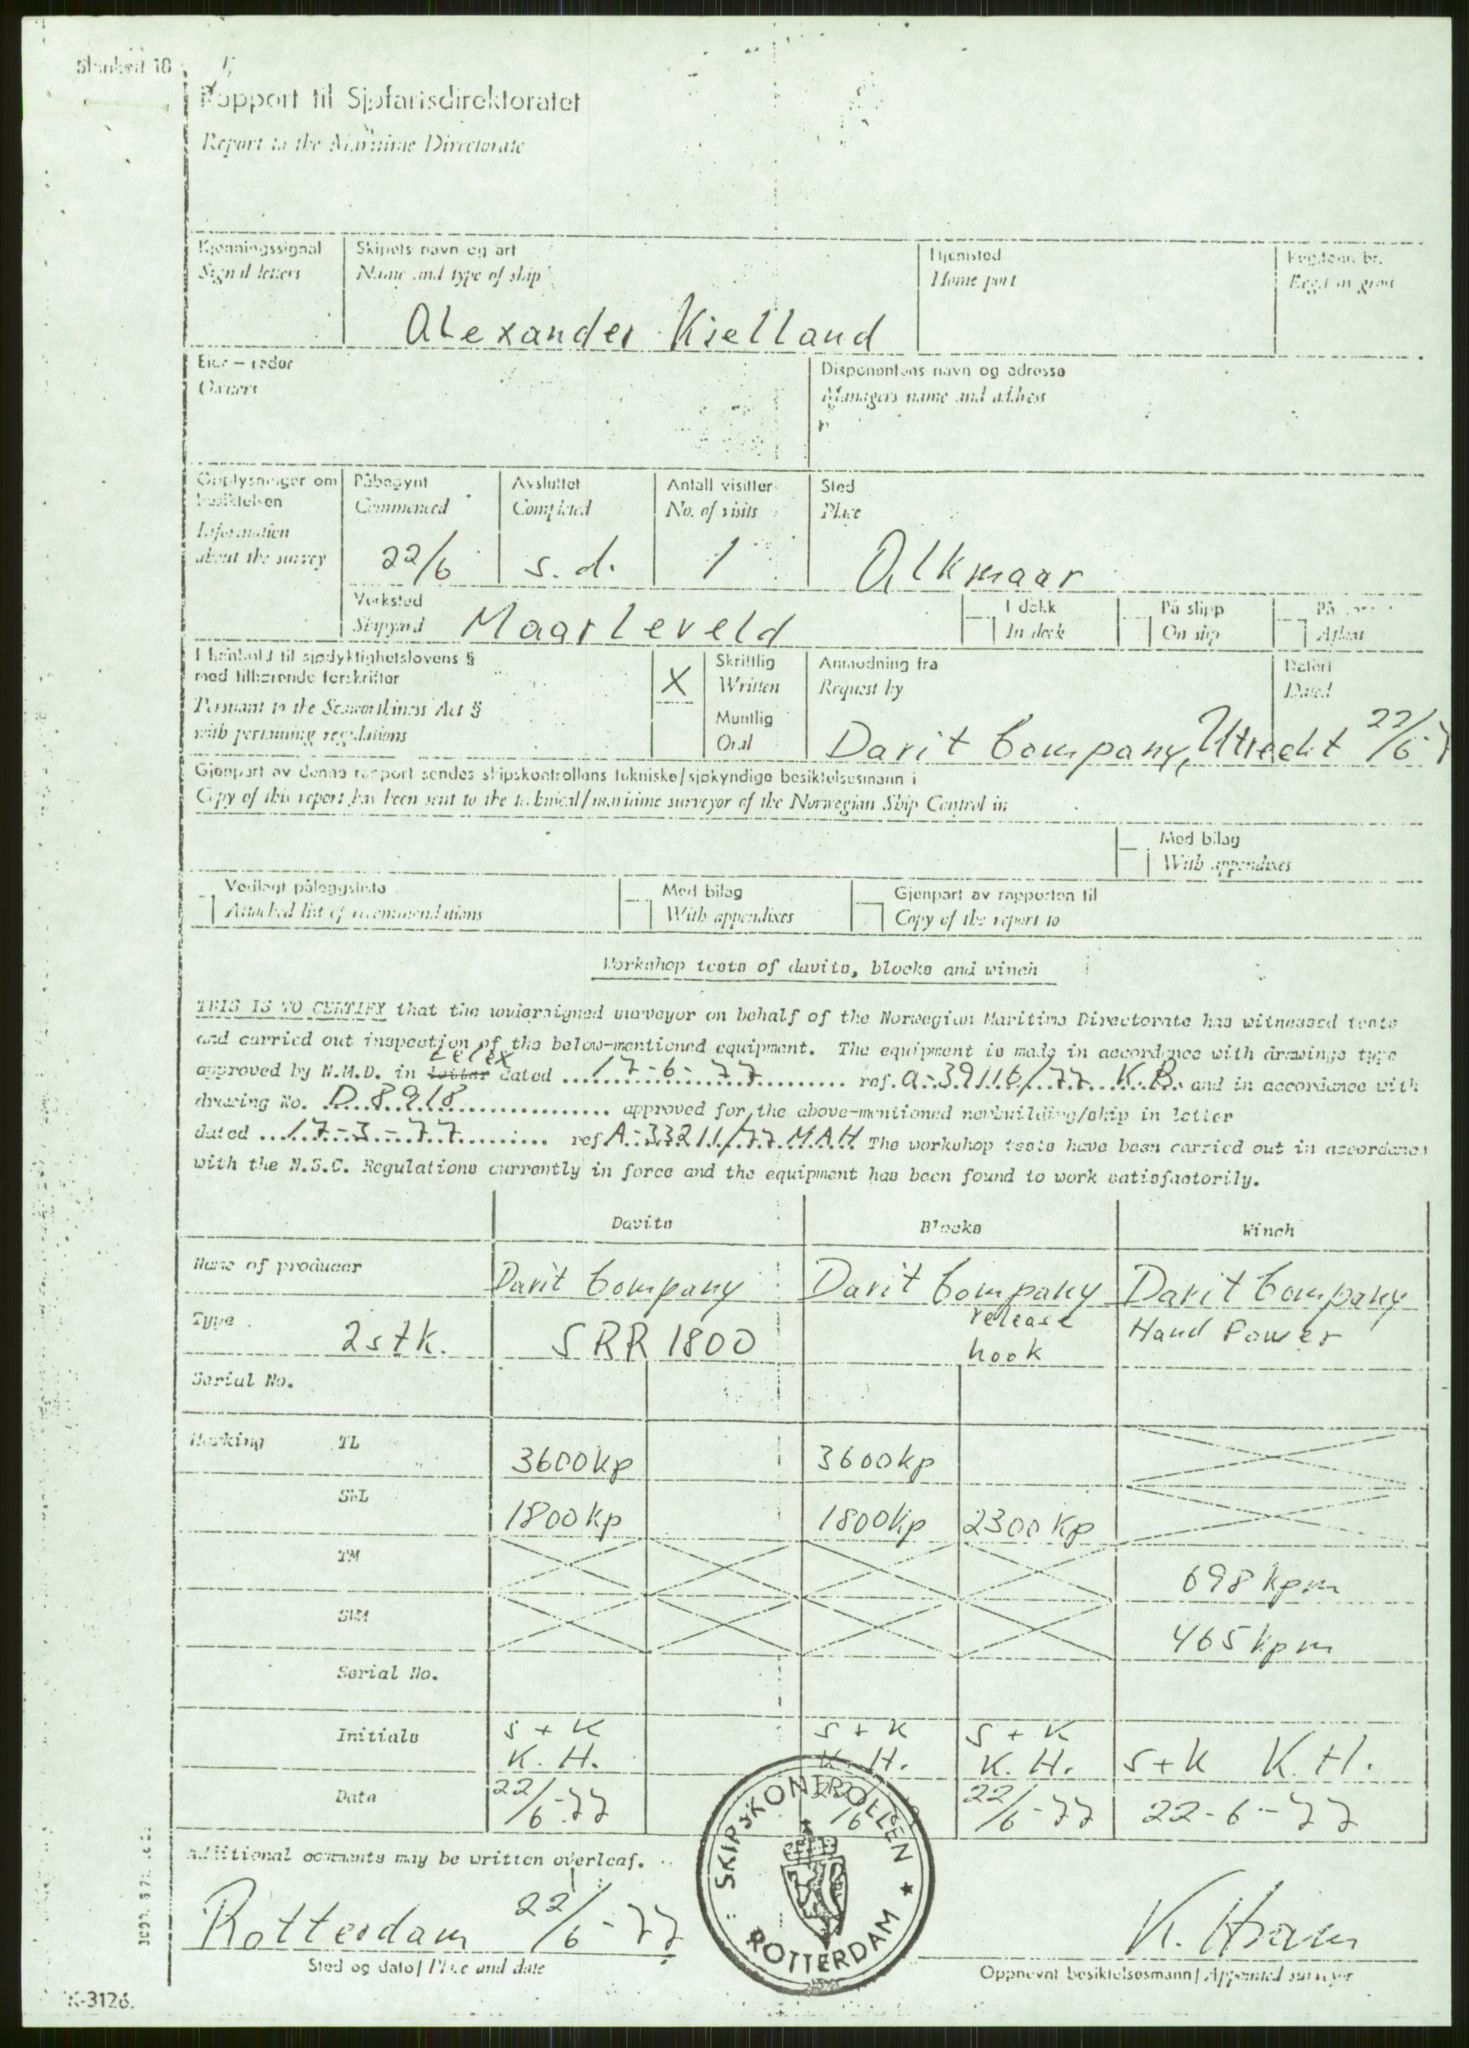 Blankett 18
Rapport til Sjøfartsdirektoratet
Report to the Maritime Directorate
Kjenningssignal
Signal letters
Skipets navn og art
Name and type of ship
Alexander Kielland
Hjemsted
Home port
Regtonn br.
Regt. in gross
Eier – reder
Owners
Disponentens navn og adresse
Managers name and address
Opplysninger om
besiktelsen
Information
about the survey
Påbegynt
Commenced
22/6
Avsluttet
Completed
s. d.
Antall visitter
No. of visits
1
Sted
Place
Alkmaar
Verksted
Shipyard
Maarleveld
I dokk
In dock
På slipp
On slip
På
Afloat
I henhold til sjødyktighetslovens §
med tilhørende forskrifter
Pursuant to the Seaworthiness Act §
with pertaining regulations
X
Skriftlig
Written
Muntlig
Oral
Anmodning fra
Request by
Datert
Dated
Davit Company, Utrecht 22/6-7
Gjenpart av denne rapport sendes skipskontrollens tekniske/sjøkyndige besiktelsesmann i
Copy of this report has been sent to the technical/maritime surveyor of the Norwegian Ship Control in
Med bilag
With appendixes
Vedlagt påleggsliste
Attached list of recommendations
Med bilag
With appendixes
Gjenpart av rapporten til
Copy of the report to
Workshop tests of davits, blocks and winch
THIS IS TO CERTIFY that the undersigned surveyor on behalf of the Norwegian Maritime Directorate has witnessed tests
and carried out inspection of the below-mentioned equipment. The equipment is made in accordance with drawings type
telex
approved by N.M.D. in letter dated 17-6-77 ref. A-39116/77 KB and in accordance with
drawing No. D 8918 approved for the above-mentioned newbuilding/ship in letter
dated 17-3-77 ref A-33211/77 MAH The workshop tests have been carried out in accordance
with the N.S.C. Regulations currently in force and the equipment has been found to work satisfactorily.
Davits
Blocks
Winch
Name of producer
Davit Company
Davit Company
Davit Company
Type
2 stk.
SRR 1800
release
hook
Hand Power
Serial No.
Marking
TL
3600kp
3600kp
SWL
1800kp
1800kp
2300kp
TM
698 kpm
SWM
465 kpm
Serial No.
Initials
S + K
K. H.
S + K
K. H.
S + K
K. H.
S+K K.H.
Date
22/6-77
22/6-77
22-6-77
Additional comments may be written overleaf.
Rotterdam 22/6-77
Sted og dato/Place and date
SKIPSKONTROLLEN
ROTTERDAM
K. Hram
Oppnevnt besiktelsesmann/Appointed surveyor
K-3126.